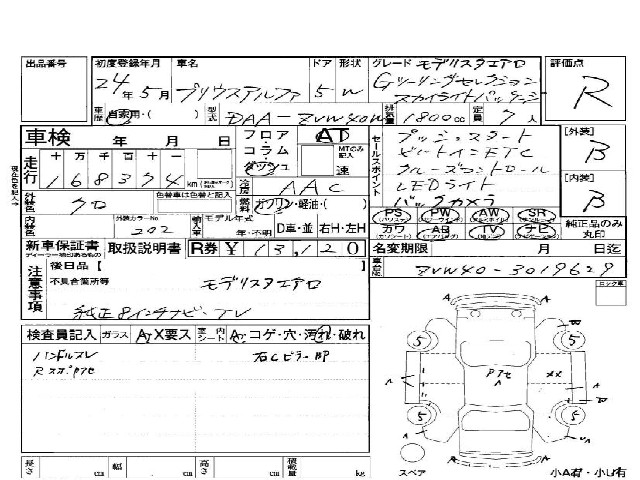 出品番号
初度登録年月 車名 ドア 形状 グレード モデリスタエアロ 評価点
24年5月 プリウスアルファ 5 W Gツーリングセレクション R
スカイライトパッケージ
車歴 自家用・( ) 型式 DAA-ZVW40W 排気量 1800cc 定員 7人
車検 年 月 日
フロア・コラム・ダッシュ AT MTのみ記入 速
セールスポイント
プッシュスタート
ビートインETC
クルーズコントロール
LEDライト
バックカメラ
[外装] B
[内装] B
走行 十 万 千 百 十 一
168374 km
冷房 AAC
外装色 クロ 色替車は色替と記入 燃料 ガソリン・軽油・( )
PS PW AW SR
カワ AB TV ナビ
純正品のみ丸印
内装色 外装カラーNo 202 輸入車 モデル年式 年・不明 D車・並 右H・左H
新車保証書 取扱説明書 R券 ¥13,120 名変期限 月 日迄
ディーラー捺印あるもの
車台No. ZVW40-3019629
注意事項
後日品【
不具合箇所等 モデリスタエアロ
純正8インチナビ・TV
ロック車
検査員記入 ガラス A,X要ス 室内シート コゲ・穴・汚れ・破れ
ハンドルスレ 右Cピラー凹
RスポPアセ
5 5
A Pアセ A XX A
5 5
スペア
長さ cm 幅 cm 高さ cm 積載量 kg
小A有・小U有
現在名を記入→